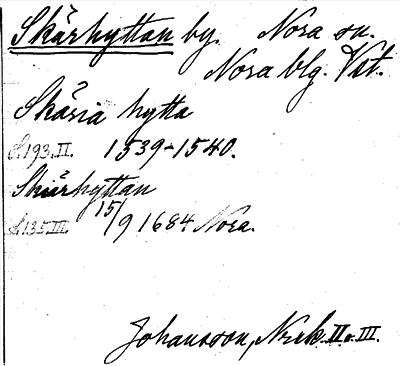 Skärhyttan by. Nora sn.
Nora blg. Vstl.
Skäria hytta
S. 193. II. 1539-1540.
Skiärhyttan
S. 135 III. 15/9 1684 Nora.
Johansson, Nerk. II o. III.